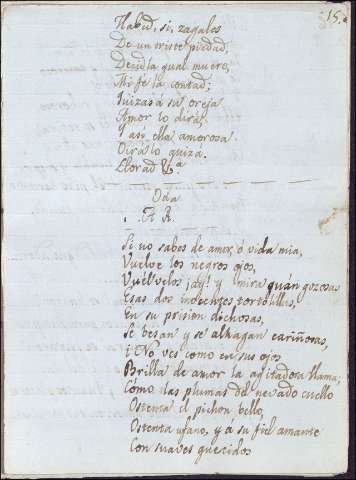 15.
Habed, si, zagales
De un triste piedad,
Decidla qual muero,
Mi fe la contad;
Quizas á su oreja
Amor lo dirá,
Y asi ella amorosa
Oirálo quizá.
Llorad &.a
Oda
A R.
Si no sabes de amor, ó vida mia,
Vuelve los negros ojos,
Vuélvelos ¡ay! y mira quán gozosas
Esas dos inocentes tortolillas,
En su prision dichosas,
Se besan y se alhagan cariñosas,
¿No ves como en sus ojos
Brilla de amor la agitadora llama;
Como las plumas del nevado cuello
Ostenta el pichon bello,
Ostenta ufano, y á su fiel amante
Con suaves quegidos